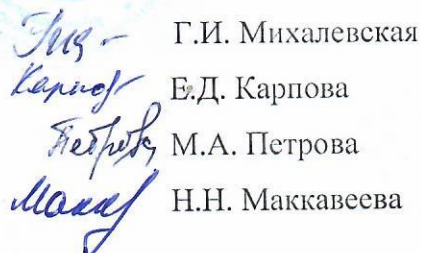 Г.И. Михалевская
Е.Д. Карпова
М.А. Петрова
Н.Н. Маккавеева